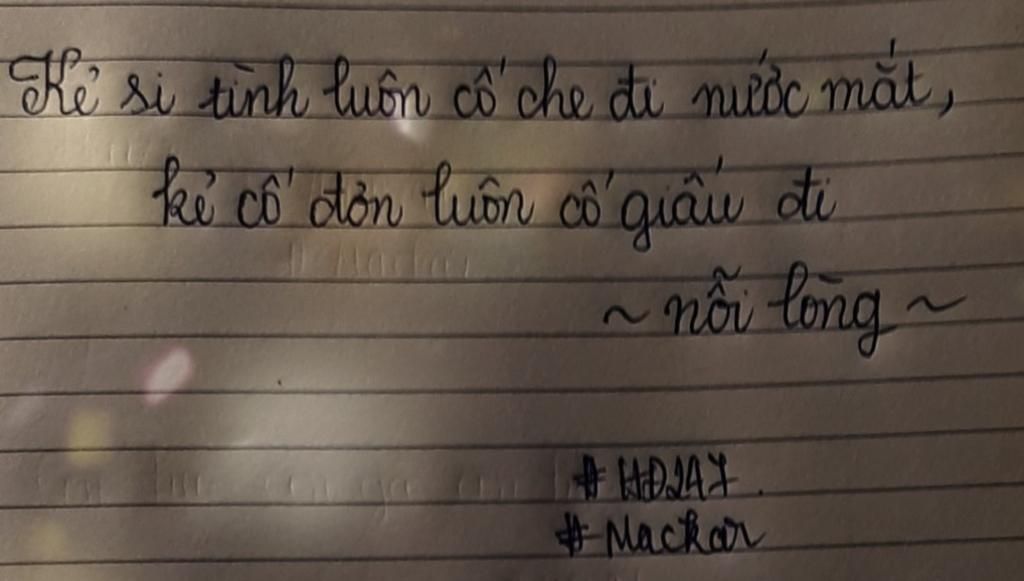 Kẻ si tình luôn cố che đi nước mắt,
kẻ cố đơn luôn cố giấu đi
~ nỗi lòng ~
#HĐ247.
#Mackar